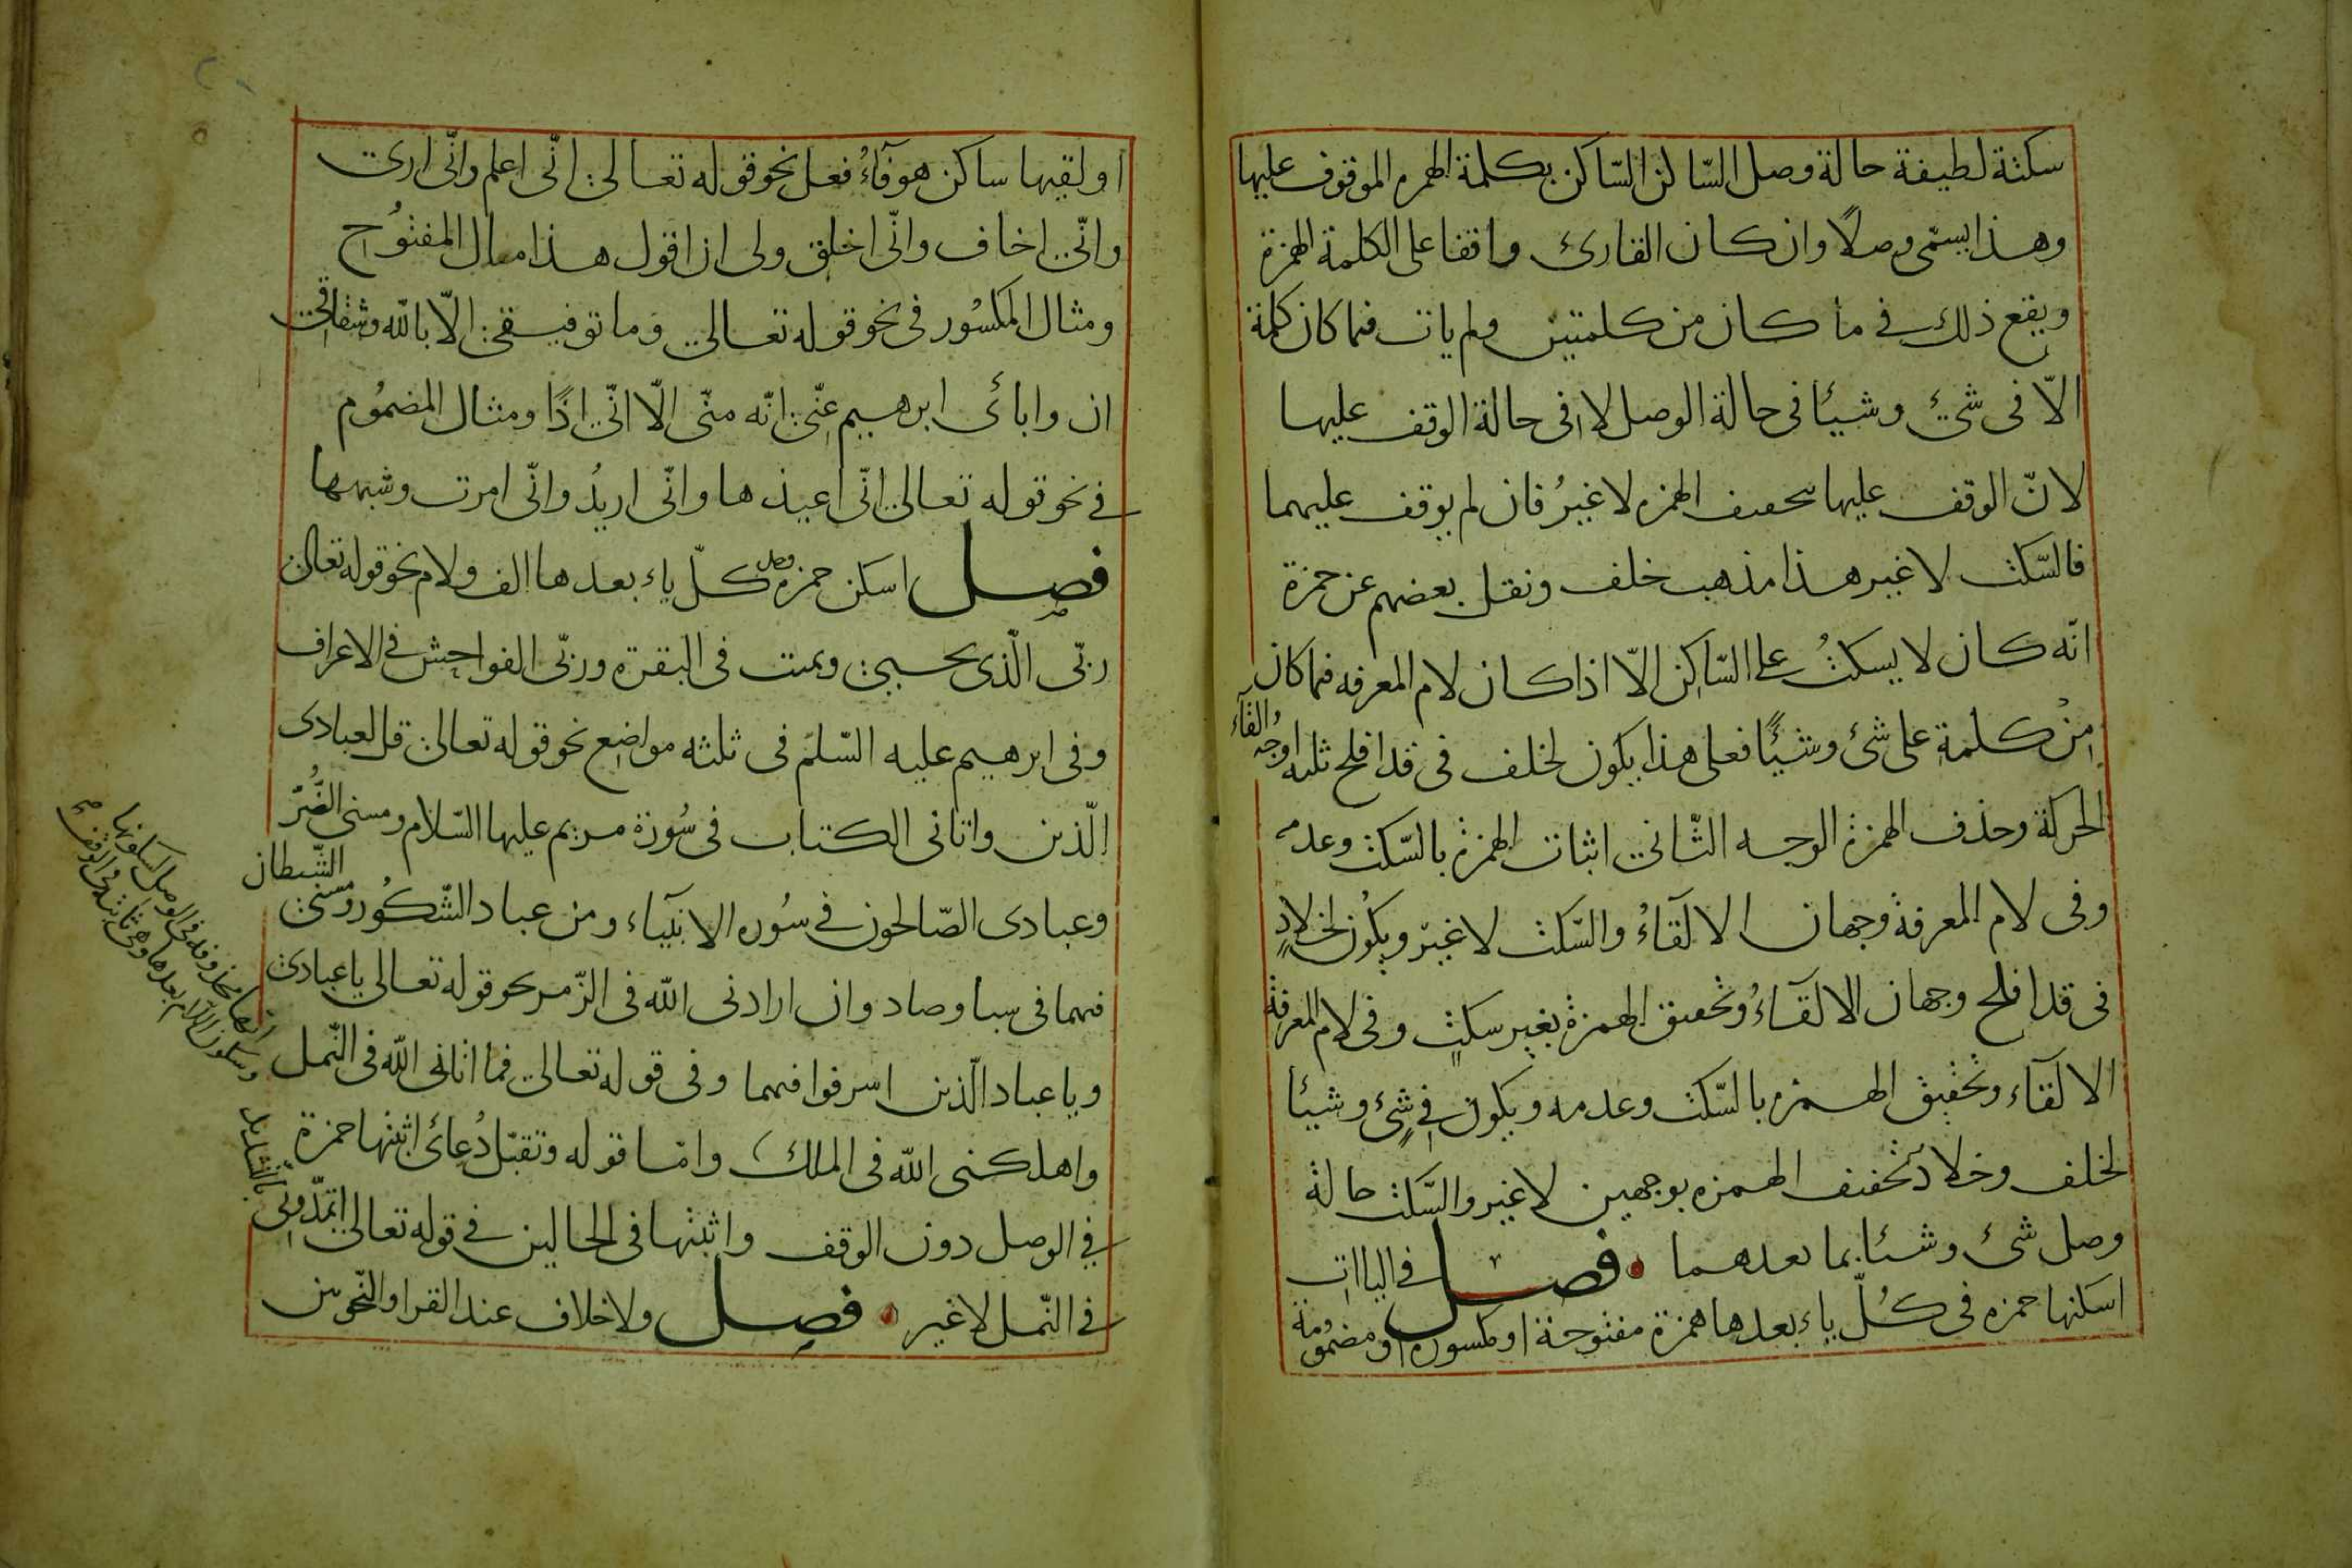 سكتة لطيفة حالة وصل الساكن الساكن بكلمة الهمزه الموقوف عليها
وهذا يسمّى وصلاً وان كان القارئ واقفا على الكلمة الهمزة
ويقع ذلك في ما كان من كلمتين ولم يات فيما كان كلمة
الاّ فى شئ وشيئا فى حالة الوصل لا فى حالة الوقف عليها
لانّ الوقف عليها بتخفيف الهمزه لا غيرُ فان لم يوقف عليهما
فالسّكت لا غير هذا مذهب خلف ونقل بعضهم عن حمزة
انّه كان لا يسكتُ على السّاكِن الاّ اذا كان لام المعرفه فيما كان
مِنْ كلمةٍ على شئ وشيئًا فعلى هذا يكون لخلف فى قد افلح ثلثه اوجه القآء
الحركة وحذف الهمزة الوجه الثّانى اثبات الهمزة بالسّكت وعدمه
وفى لام المعرفة وجهان الالقآءُ والسّكت لا غير ويكُون لخلادٍ
فى قد افلح وجهان الالقآءُ وتحقيق الهمزة بغير سكتٍ وفى لام المعرفة
الالقآء وتحقيق الهمزه بالسّكت وعدمه ويكون فى شئ وشيئا
لخلف وخلاد تخفيف الهمزه بوجهين لا غير والسّكت حالة
وصل شئ وشيئا بما بعدهما فصل في الياات
اسكنها حمزه فى كُلّ ياء بعدها همزة مفتوحة او مكسوره او مضمُومة
او لقيها ساكن هو فآءُ فعل نحو قوله تعالى انّى اعلم وانّى ارى
وانّى اخاف وانّى اخلق ولى ان اقول هذا مثال المفتوُح
ومثال المكسُور فى نحو قوله تعالى وما توفيقى الاّ بالله وشقاقى
ان وابائى ابرهيم عنّى انّه منّى الاّ انّى اذًا ومثال المضمُوم
في نحو قوله تعالى انّى اعيذها وانّى اريدُ وانّى امرت وشبهها
فصل اسكن حمزه وصل كلّ ياء بعدها الف ولام نحو قوله تعالى
ربّى الّذى يحيى ويميت فى البقرة وربّى الفواحش فى الاعراف
وفى ابرهيم عليه السّلم فى ثلثه مواضع نحو قوله تعالى قل لعبادى
الّذين واتانى الكتاب فى سُورة مريم عليها السّلام ومسنى الضُّرّ
وعبادى الصّالحون في سُوره الانبيآء ومن عباد الشّكُور ومسنى
الشّيطان
فيهما فى سبا وصاد وان ارادنى الله فى الزّمر نحو قوله تعالى يا عبادى
ويا عباد الّذين اسرفوا فيهما وفى قوله تعالى فما اتانى الله فى النّمل
واهلكنى الله فى الملك وامّا قوله وتقبّل دُعائ اثبتها حمزة
في الوصل دون الوقف واثبتها فى الحالين في قوله تعالى اتمدّونى
في النّمل لا غير فصل ولا خلاف عند القرا والنّحويين
انها محذوفه فى الوصل لسكونها
وسكون اللام بعدها وهى ثابته فى الوقف
بالتشديد